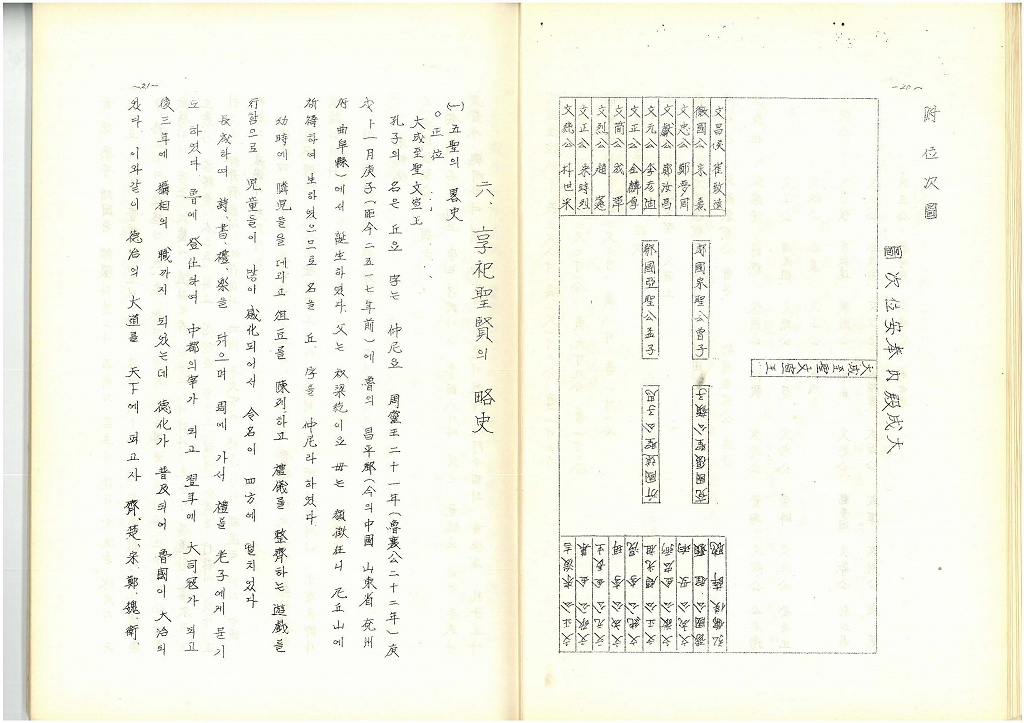 -20-
附位次圖
大成殿內奉安位次圖
大成至聖文宣王
郕國宗聖公曾子
鄒國亞聖公孟子
兗國復聖公顔子
沂國述聖公子思
文昌侯 崔致遠
徽國公 朱 熹
文忠公 鄭夢周
文獻公 鄭汝昌
文元公 李彦迪
文正公 金麟厚
文簡公 成 渾
文烈公 趙 憲
文正公 宋時烈
文純公 朴世采
弘儒侯 薛 聰
豫國公 程 顥
文成公 安 珦
文敬公 金宏弼
文正公 趙光祖
文純公 李 滉
文成公 李 珥
文元公 金長生
文敬公 金 集
文正公 宋浚吉
-21-
六、享祀聖賢의 略史
(一) 五聖의 畧史
○正位
大成至聖文宣王
孔子의 名은 丘요 字는 仲尼요 周靈王二十一年(魯襄公二十二年)庚
戌十一月庚子(距今二五一七年前)에 魯의 昌平鄕(今의中國 山東省 兗州
府 曲阜縣)에서 誕生하였다. 父는 叔梁紇이요 母는 顔徵在니 尼丘山에
祈禱하여 生하였으므로 名을 丘、字를 仲尼라 하였다.
幼時에 隣兒들을 데리고 俎豆를 陳列하고 禮儀를 整齊하는 遊戱를
行함으로 児童들이 많이 感化되어서 令名이 四方에 떨치었다
長成하여 詩、書、禮、樂을 닦으며 周에 가서 禮를 老子에게 묻기
도 하였다 魯에 登仕하여 中都의宰가 되고 翌年에 大司冦가 되고
後三年에 攝相의 職까지 되었는데 德化가 普及되어 魯國이 大治의
였다. 이와같이 德治의 大道를 天下에 펴고자 齊、楚、宋、鄭、魏、衛、